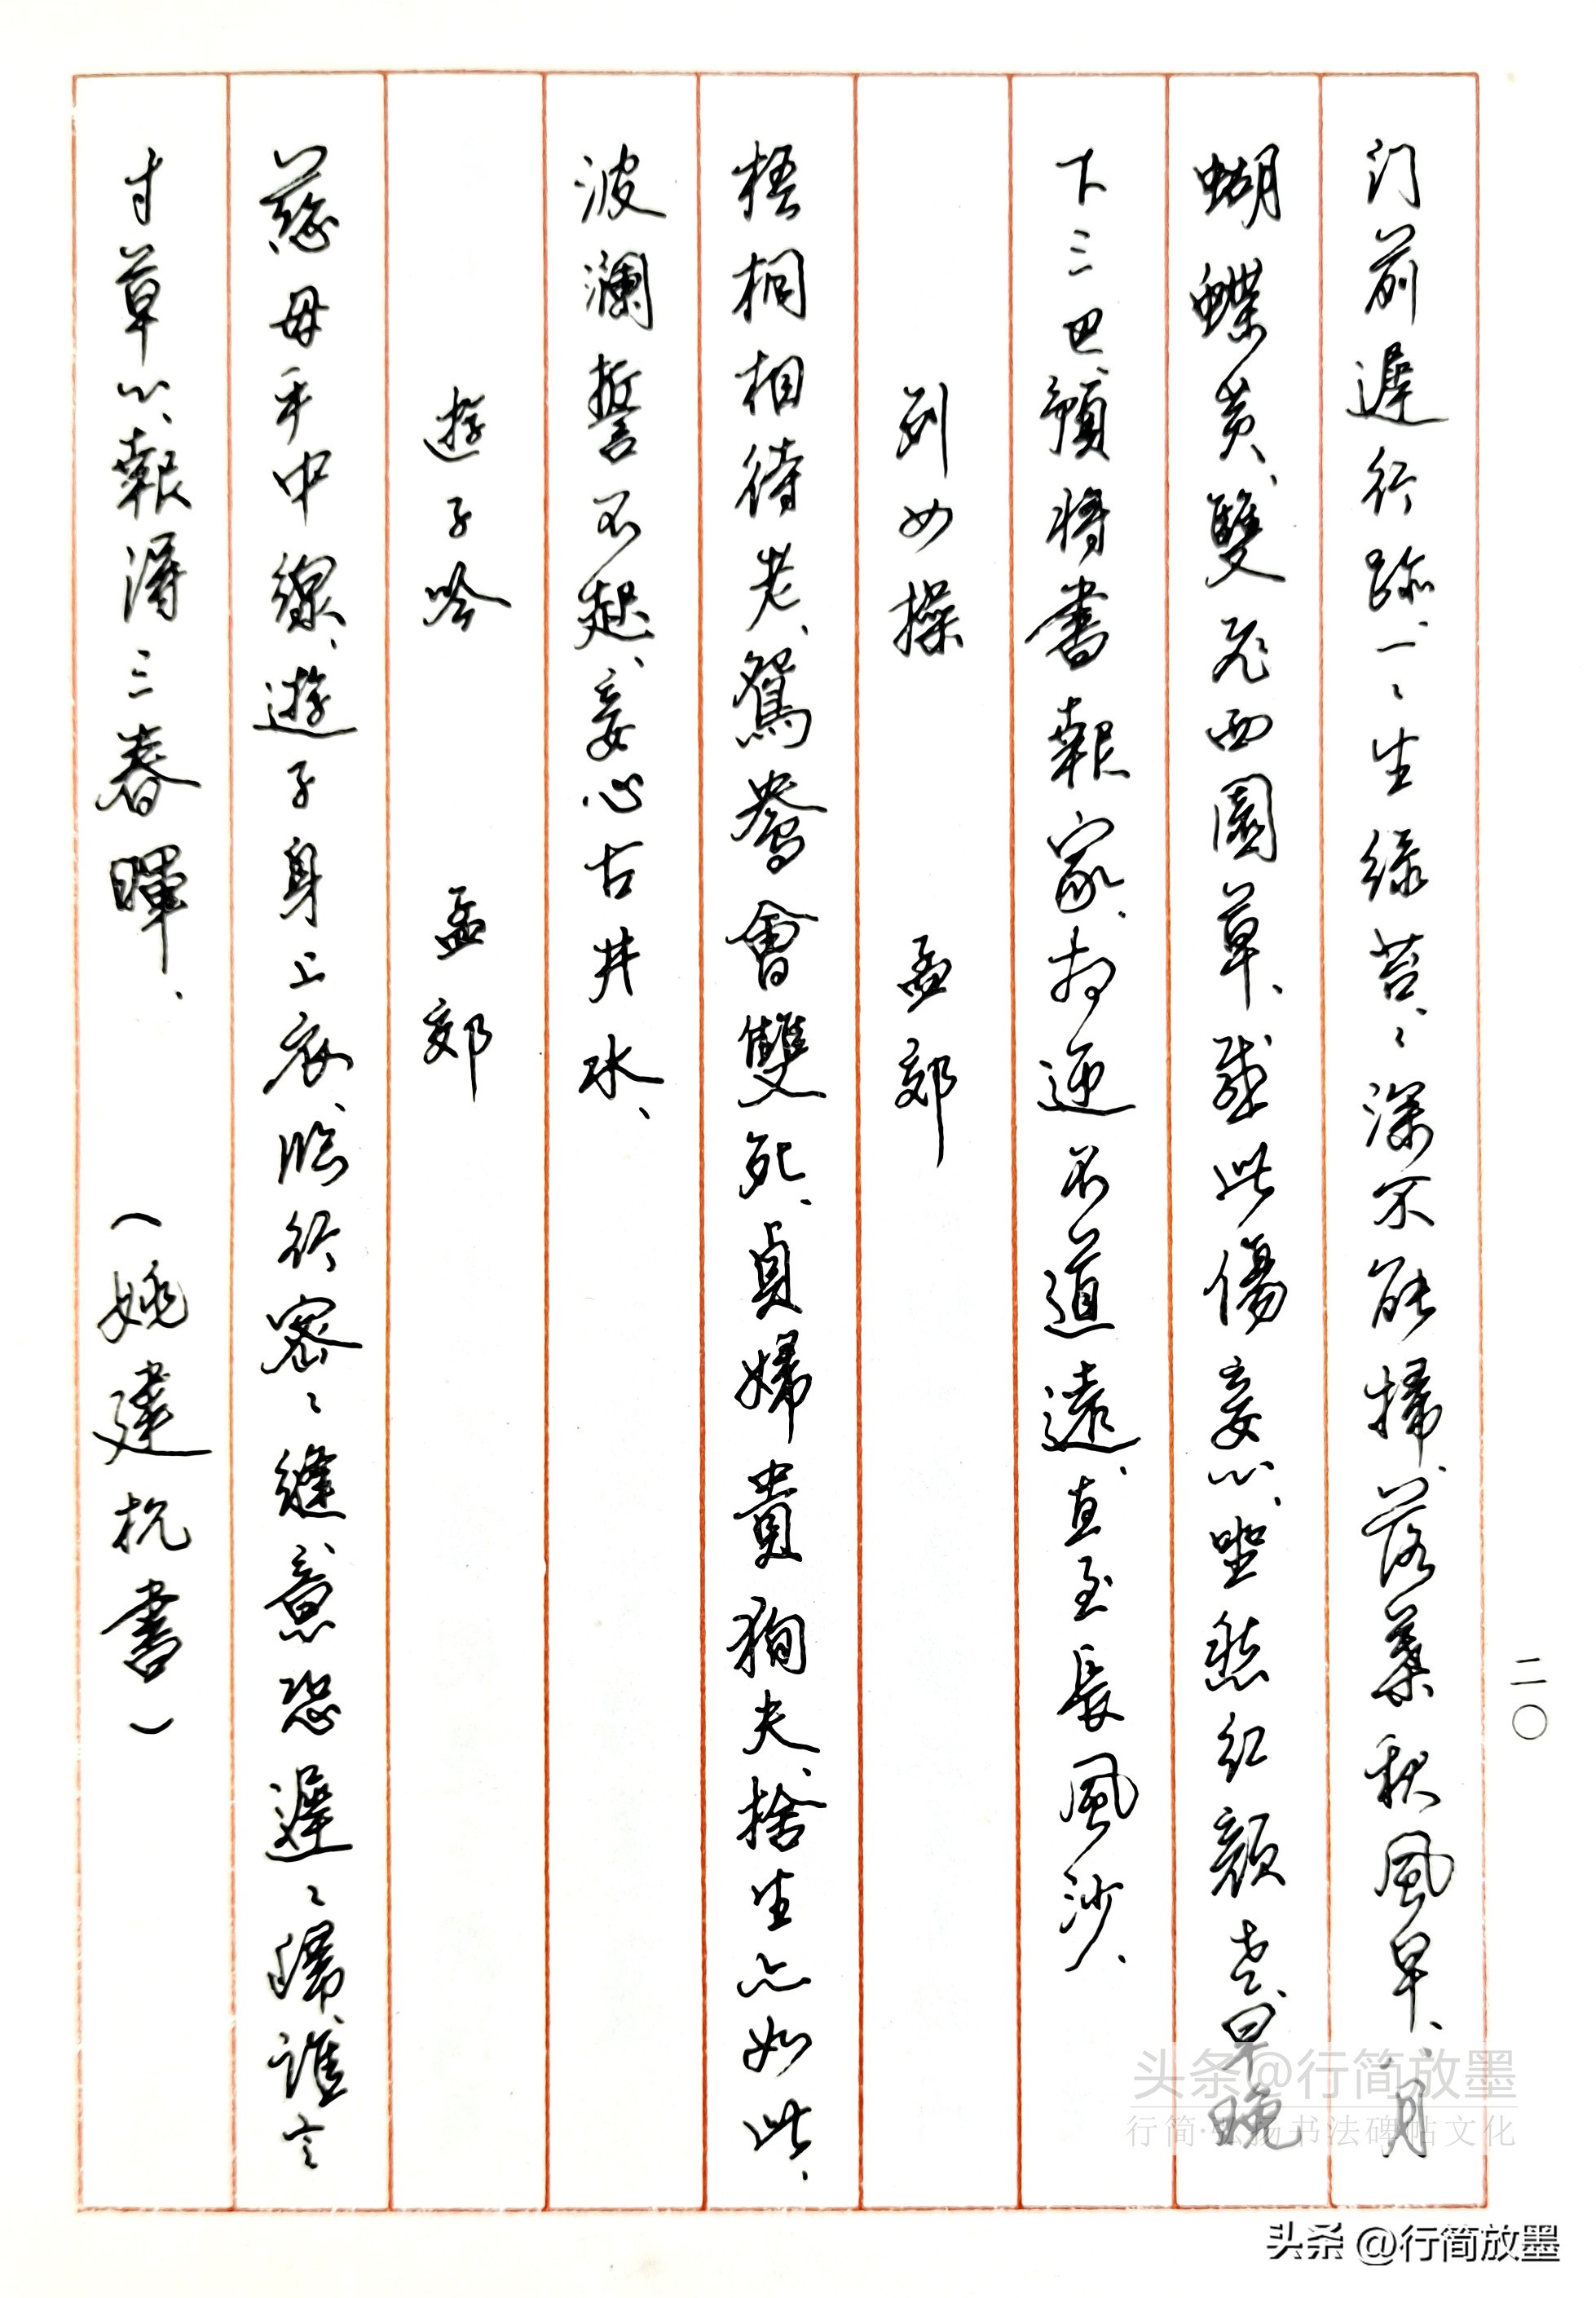 门前遲行跡、一〻生綠苔、〻深不能掃、落葉秋風早、八月
蝴蝶黄、雙飛西園草、感此傷妾心、坐愁紅顏老、早晚
下三巴、預將書報家、相迎不道遠、直至長風沙、
列女操 孟郊
梧桐相待老、鴛鴦會雙死、貞婦貴殉夫、捨生亦如此、
波瀾誓不起、妾心古井水、
遊子吟 孟郊
慈母手中線、遊子身上衣、臨行密〻縫、意恐遲〻歸、誰言
寸草心、報得三春暉、 (姚建杭書)
二〇
头条@行简放墨
行简·弘扬书法碑帖文化
头条 @行简放墨